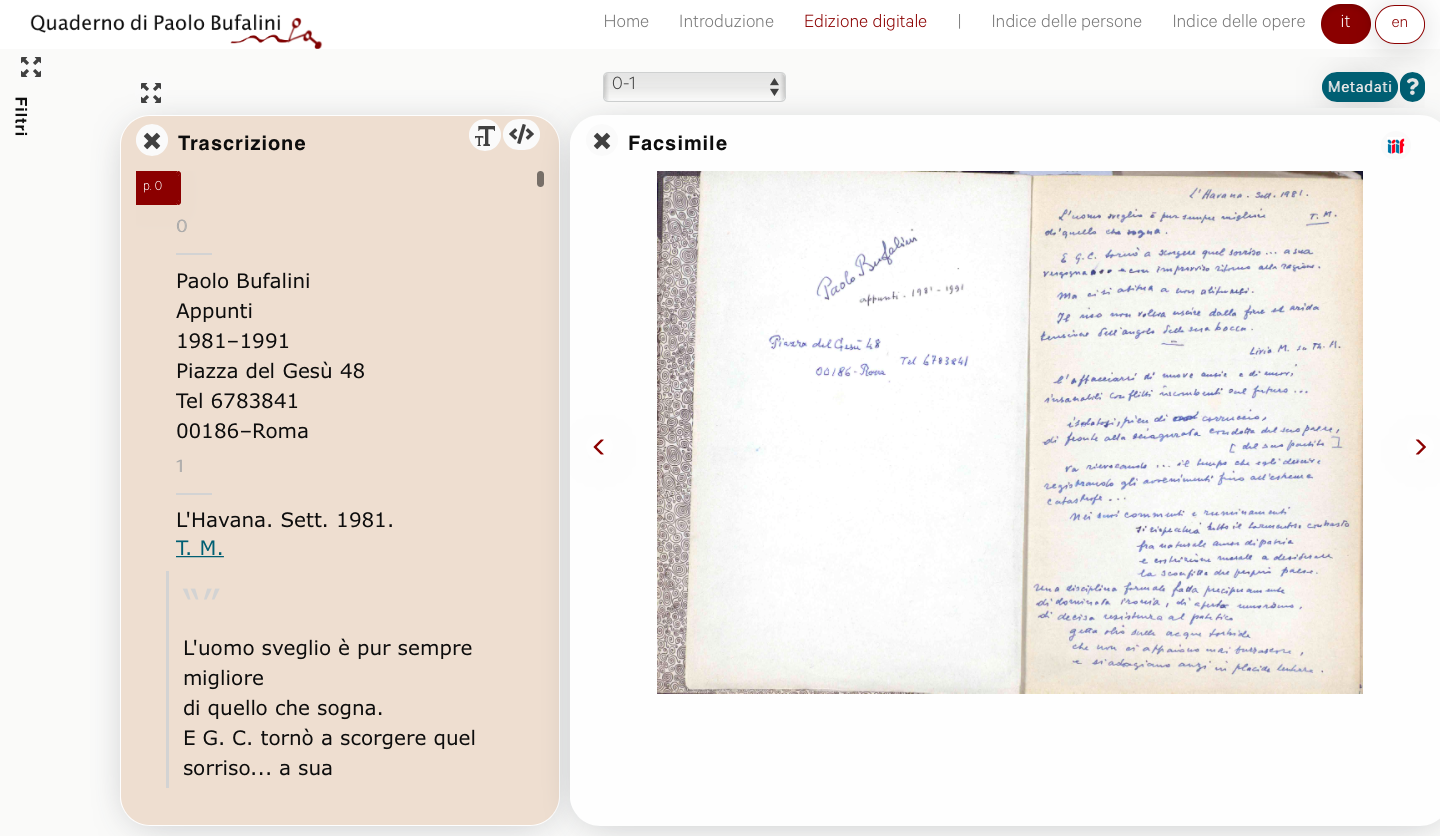 Quaderno di Paolo Bufalini
Home Introduzione Edizione digitale | Indice delle persone Indice delle opere it en
Filtri
0-1
Metadati ?
Trascrizione
p. 0
0
Paolo Bufalini
Appunti
1981–1991
Piazza del Gesù 48
Tel 6783841
00186–Roma
1
L'Havana. Sett. 1981.
T. M.
L'uomo sveglio è pur sempre
migliore
di quello che sogna.
E G. C. tornò a scorgere quel
sorriso... a sua
Facsimile
iiif
Paolo Bufalini
appunti - 1981 - 1991
Piazza del Gesù 48
Tel 6783841
00186 - Roma
L'Havana. Sett. 1981.
L'uomo sveglio è pur sempre migliore T. M.
di quello che sogna.
E G.C. tornò a scorgere quel sorriso... a sua
vergogna e con improvviso ritorno alla ragione.
Ma ci si abitua a non abituarsi.
Il riso non voleva uscire dalla fine ed arida
tensione dell'angolo della sua bocca.
Livio M. su Th. M.
l'affacciarsi di nuove ansie e di nuovi,
insanabili conflitti incombenti sul futuro...
isolatosi, pieno di corruccio,
di fronte alla sciagurata condotta del suo paese,
[del suo partito]
va rievocando ... il tempo che egli descrive
registrando gli avvenimenti fino all'estrema
catastrofe...
Nei suoi commenti e ruminamenti
si rispecchia tutto il tormentoso contrasto
fra naturale amor di patria
e costrizione morale a desiderare
la sconfitta del proprio paese.
una disciplina formale fatta precipuamente
di dominata ironia, di aperto umorismo,
di decisa resistenza al patetico
getta olio sulle acque torbide
che non ci appaiano mai burrascose,
e si adagiano anzi in placide